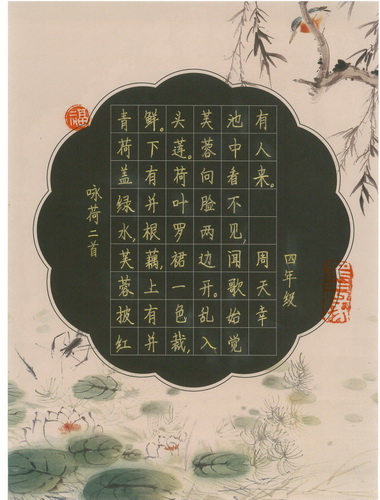 福
咏荷二首
青荷盖绿水,芙蓉披红
鲜。下有并根藕,上有并
头莲。荷叶罗裙一色裁,
芙蓉向脸两边开。乱入
池中看不见,闻歌始觉
有人来。 周天幸
四年级